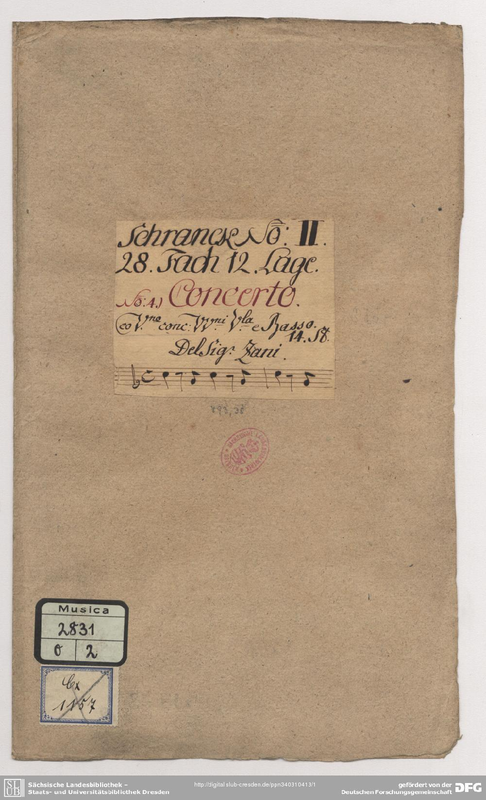 Schranck No: II.
28. Fach 12. Lage.
No: 4.) Concerto.
co V.no conc: VV.ni V.la e Basso.
14. St.
Del Sig.r Zani.
Musica
2831
O 2
Cx
1157
Sächsische Landesbibliothek –
Staats- und Universitätsbibliothek Dresden
http://digital.slub-dresden.de/ppn340310413/1
gefördert von der
Deutschen Forschungsgemeinschaft
DFG